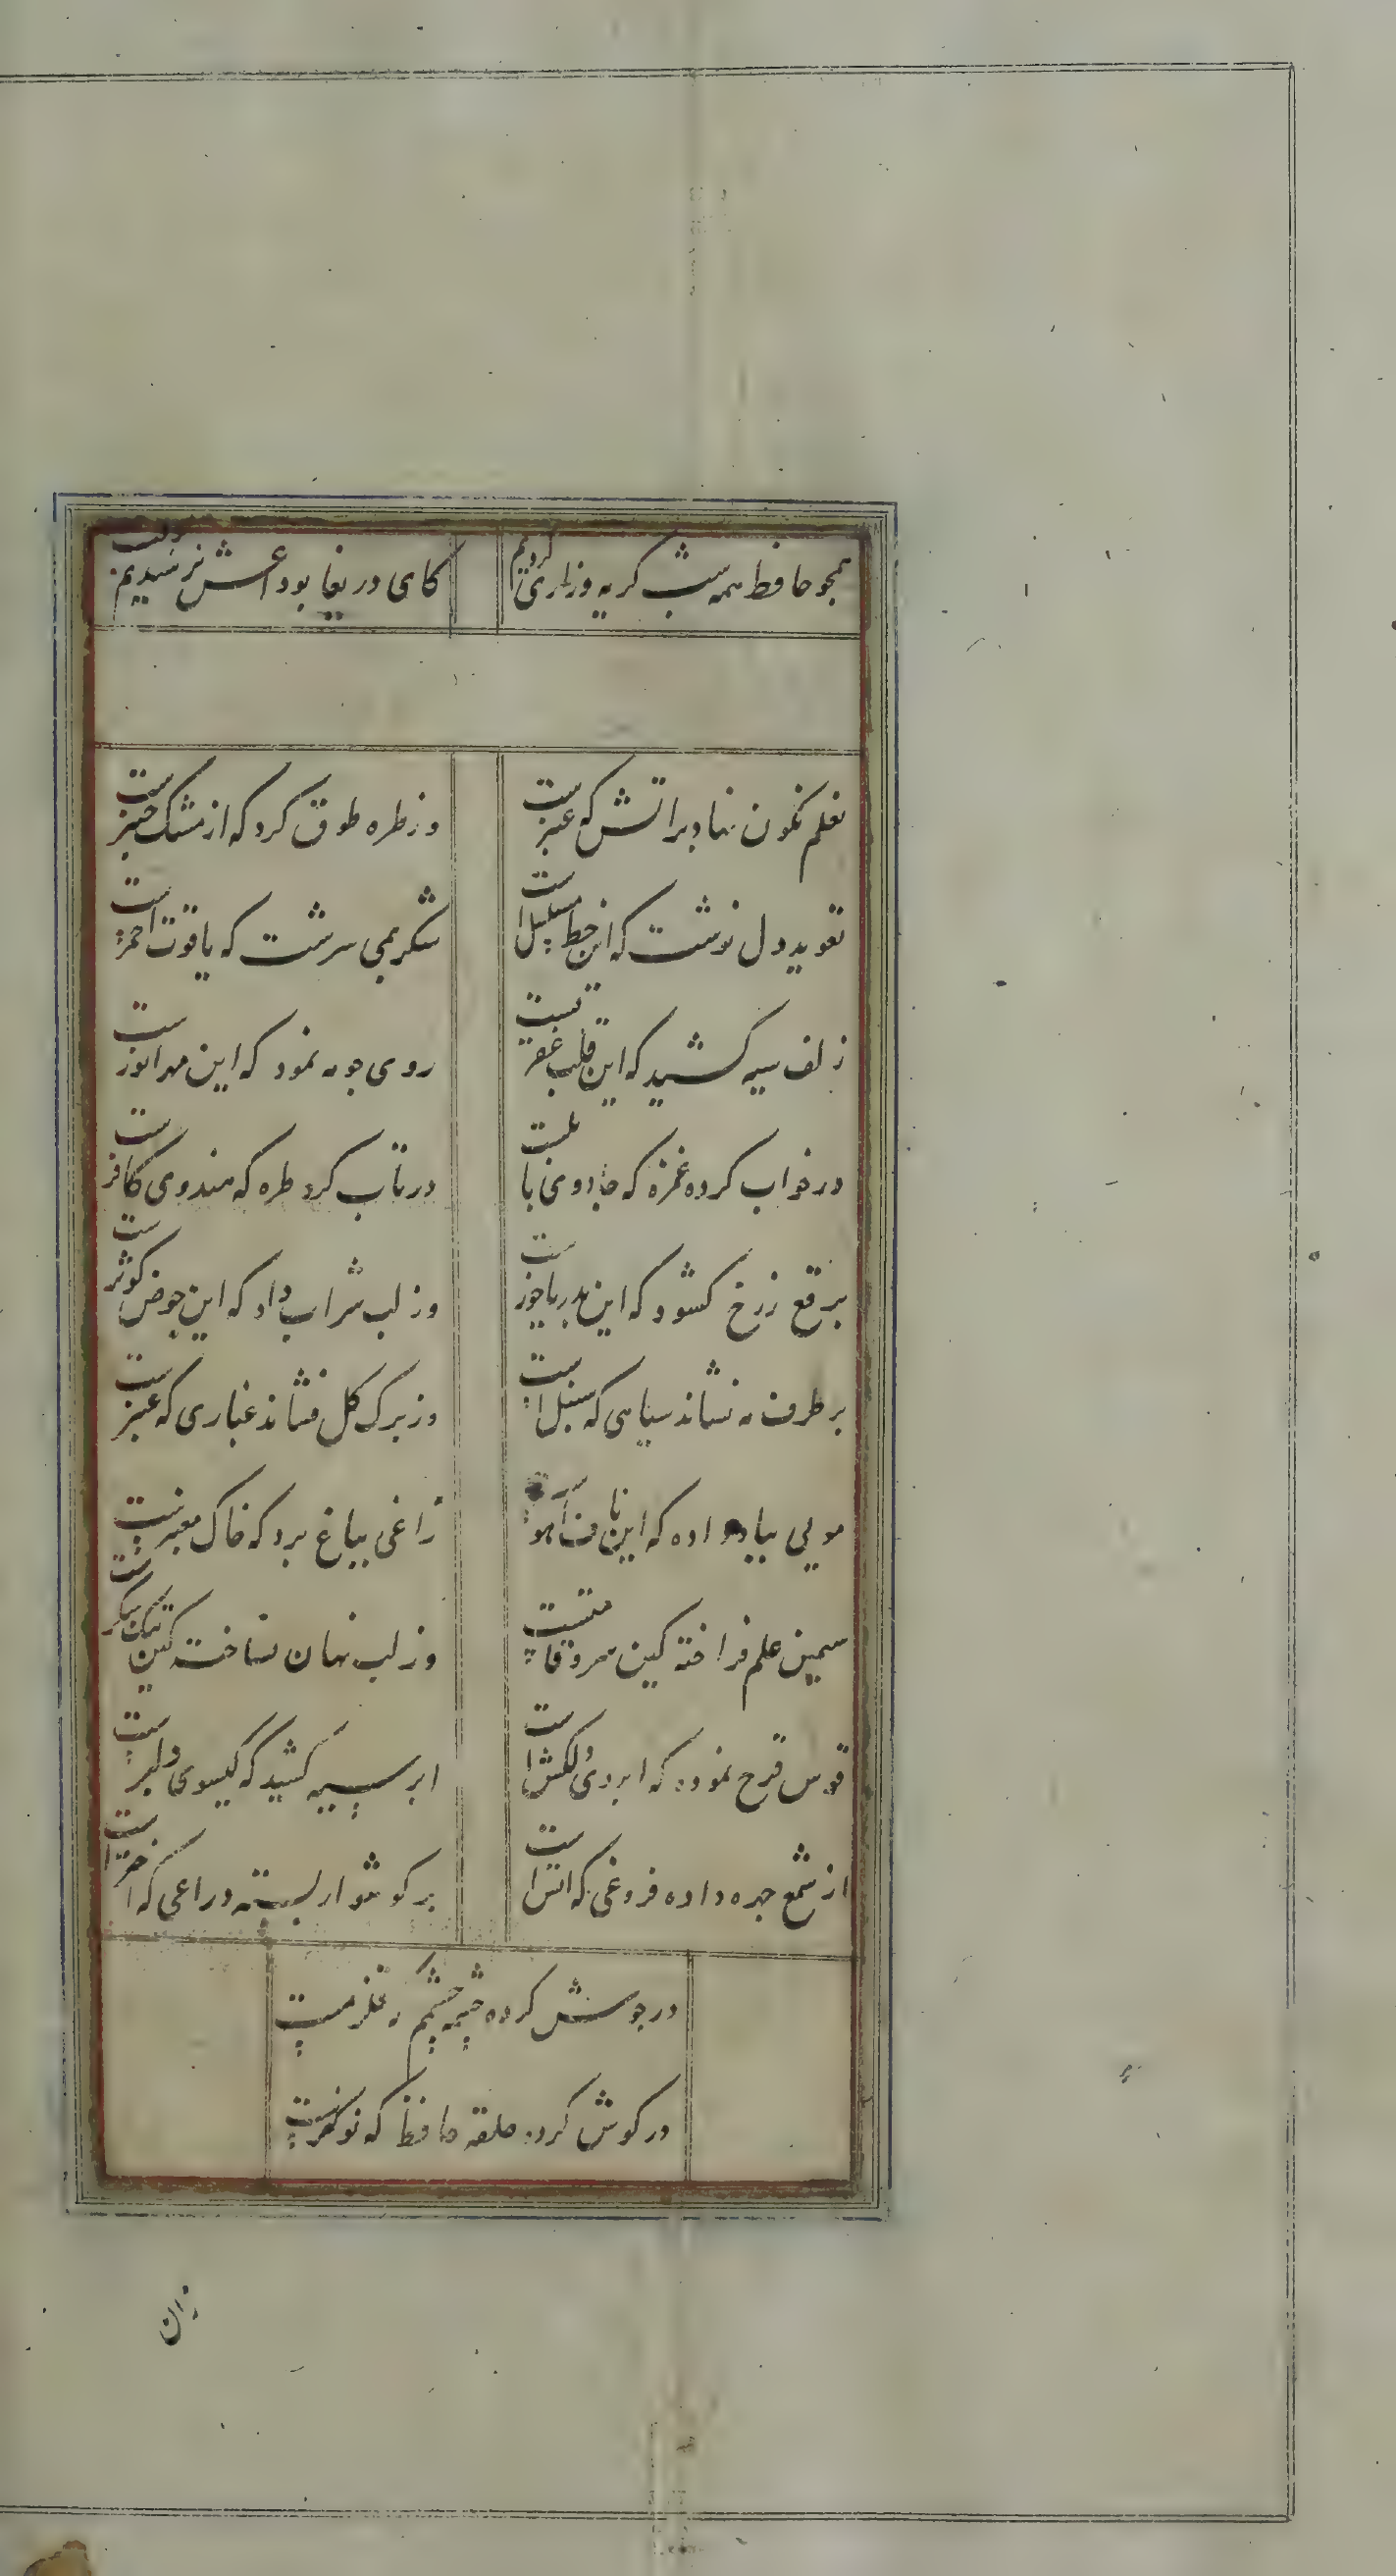 همچو حافظ همه شب گریه و زاری کردیم
کای دریغا بوداعش نرسیدیم و برفت
نعلم نگون نهاد بر آتش که عنبرست
وز طره طوق کرد که از مشک چنبرست
تعوید دل نوشت که این خط مسلسل است
شکر بمی سرشت که یاقوت احمر است
زلف سیه کشید که این قلب عقربست
روی چو مه نمود که این مه انورست
در خواب کرده غمزه که جادوی بابلست
در تاب کرد طره که هندوی کافرست
برقع ز رخ کشود که این بدر یا خورست
وز لب شراب داد که این حوض کوثرست
بر طرف مه نشاند سیاهی که سنبل است
وز برک کل فشاند غباری که عنبرست
مویی بباد داده که این نافه آهوست
زاغی بباغ برد که خاک معنبرست
سیمین علم فراخته کین سرو قامتست
وز لب نهان نساخته کین تنک شکرست
قوس قزح نموده که ابروی دلکش است
ابر سیه کشید که کیسوی دلبرست
از شمع چهره داده فروغی که آتش است
بر کوشوار بسته دراعی که اختر است
در جوش کرده چشمه چشمم که قلزمست
در کوش کرده حلقه حافظ که نوکرست
زان